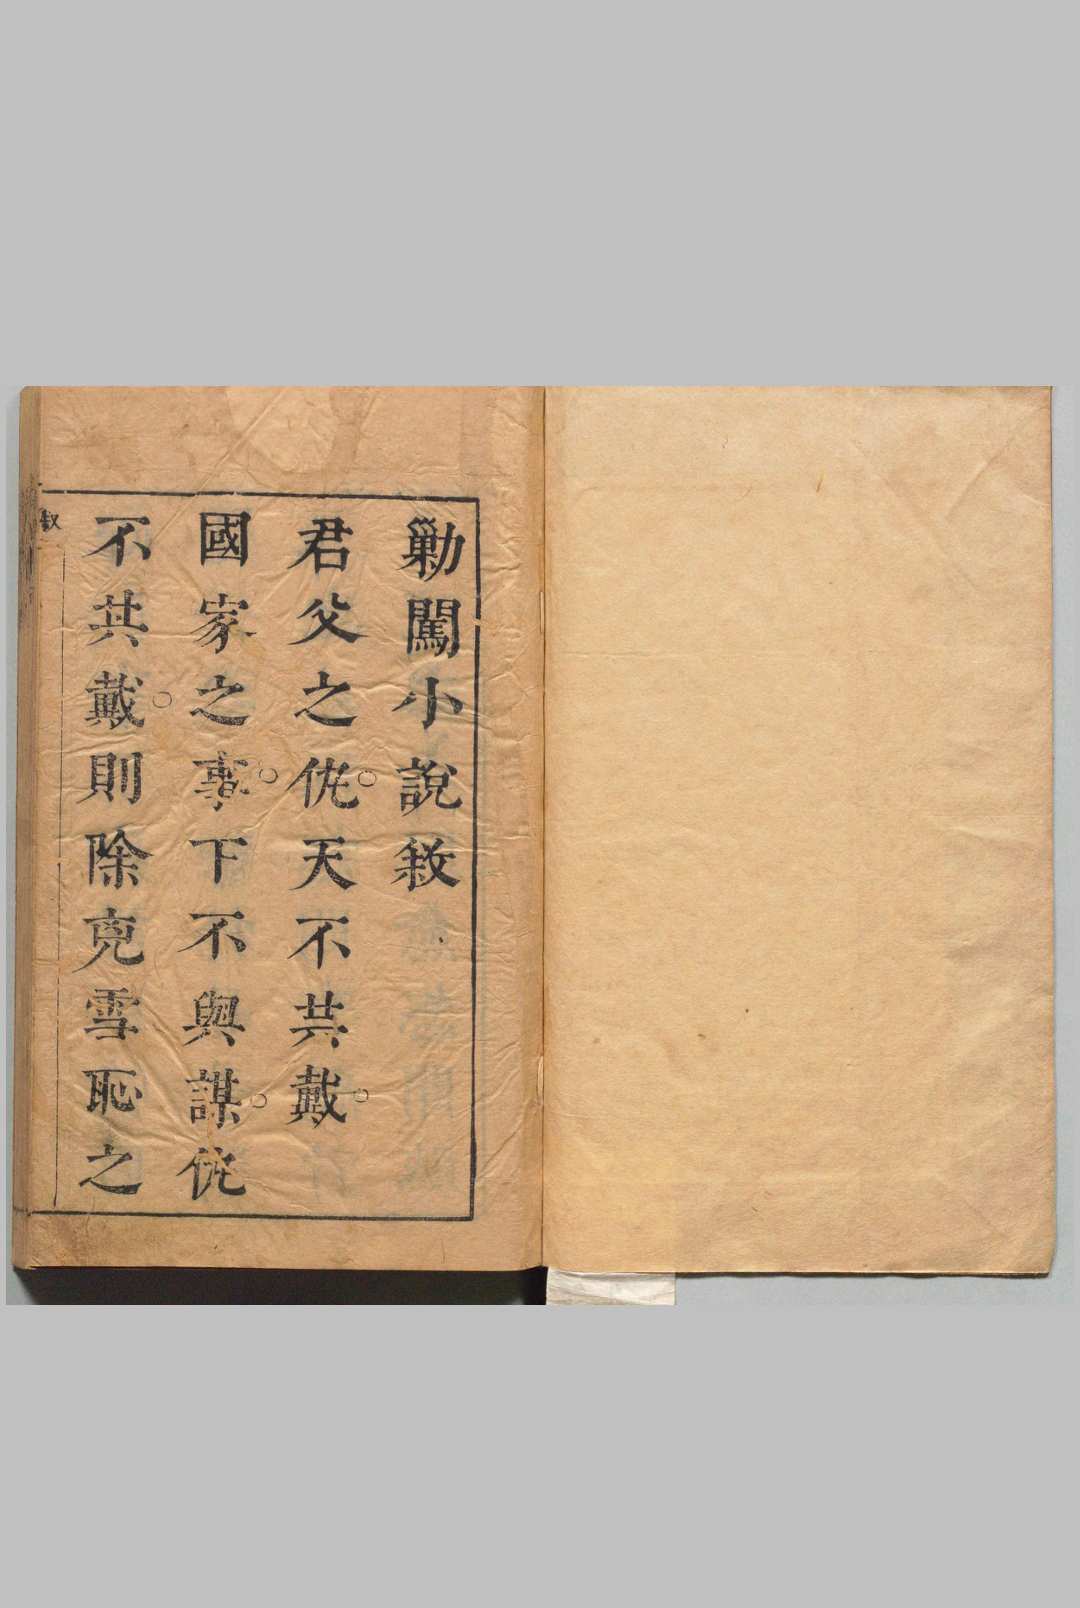 勦闖小說敘
君父之仇天不共戴
國家之事下不與謀仇
不共戴則除兇雪恥之
敘